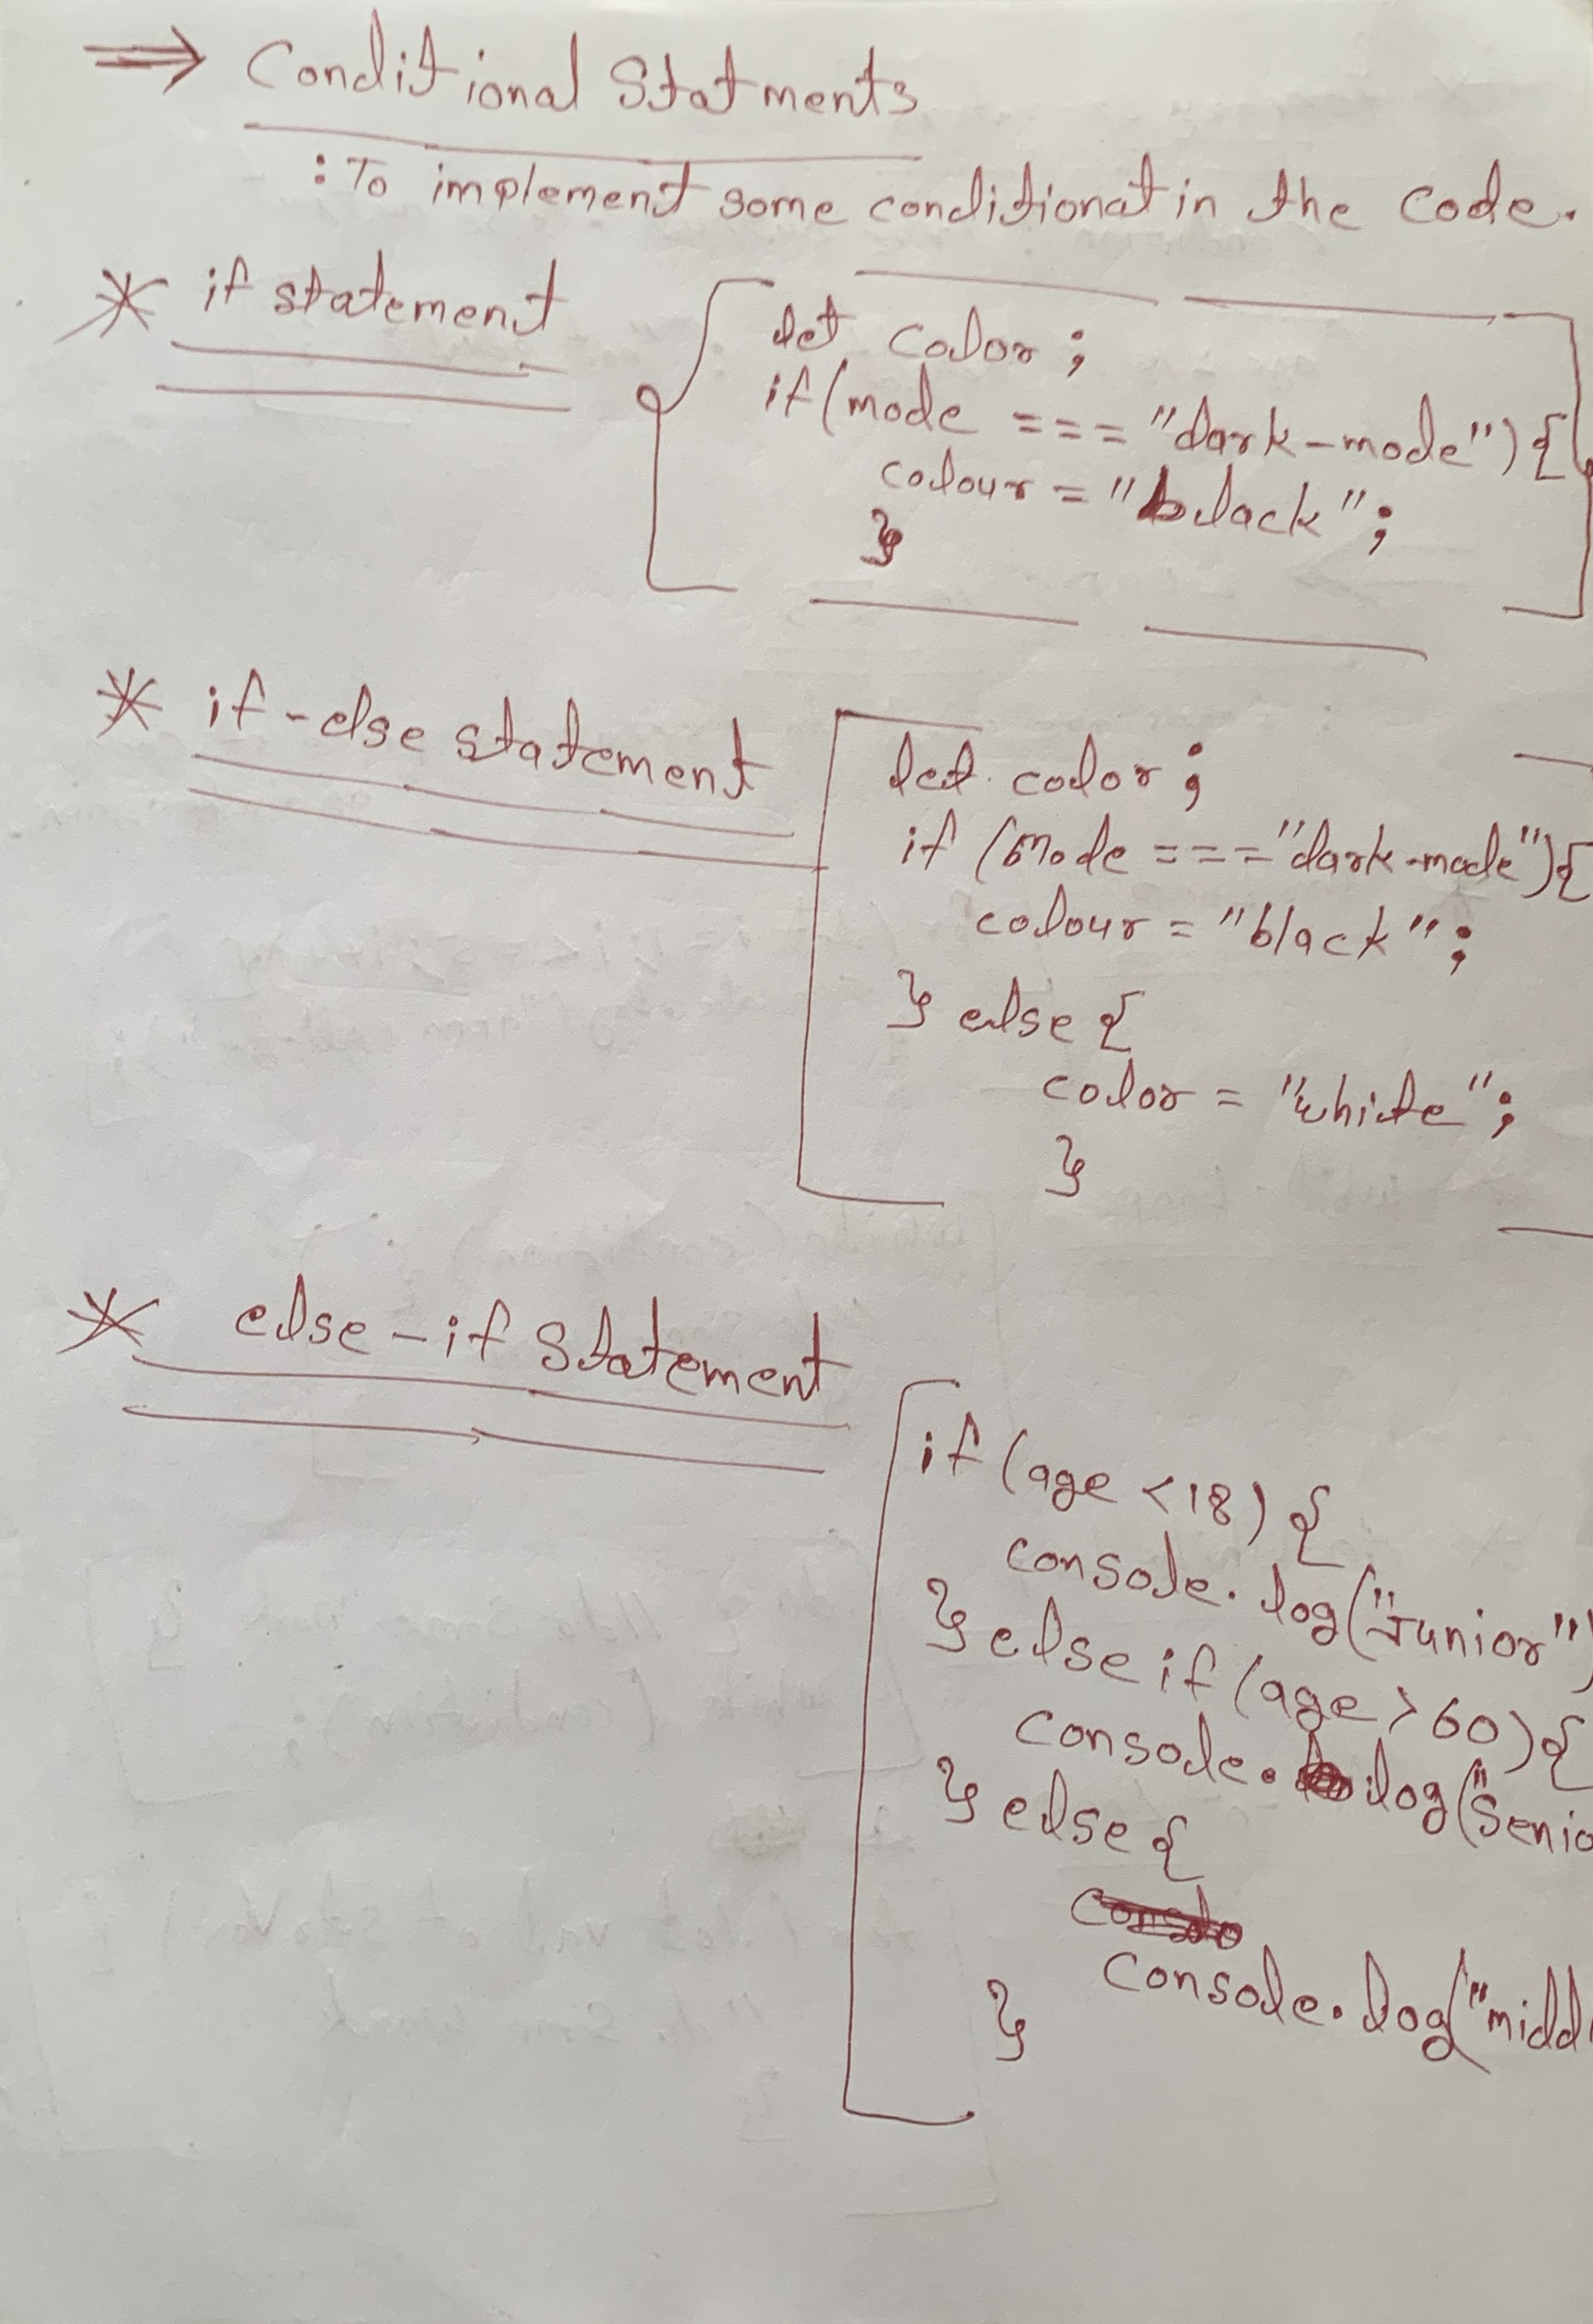 ⇒ Conditional Statments
: To implement some conditionat in the code.
* if statement
let color ;
if (mode === "dark-mode") {
colour = "black" ;
}
* if-else statement
let color ;
if (mode === "dark-mode") {
colour = "black" ;
} else {
color = "white" ;
}
* else-if Statement
if (age < 18) {
console. log("Junior")
} else if (age > 60) {
console. log("Senio
} else {
Console. log("midd
}